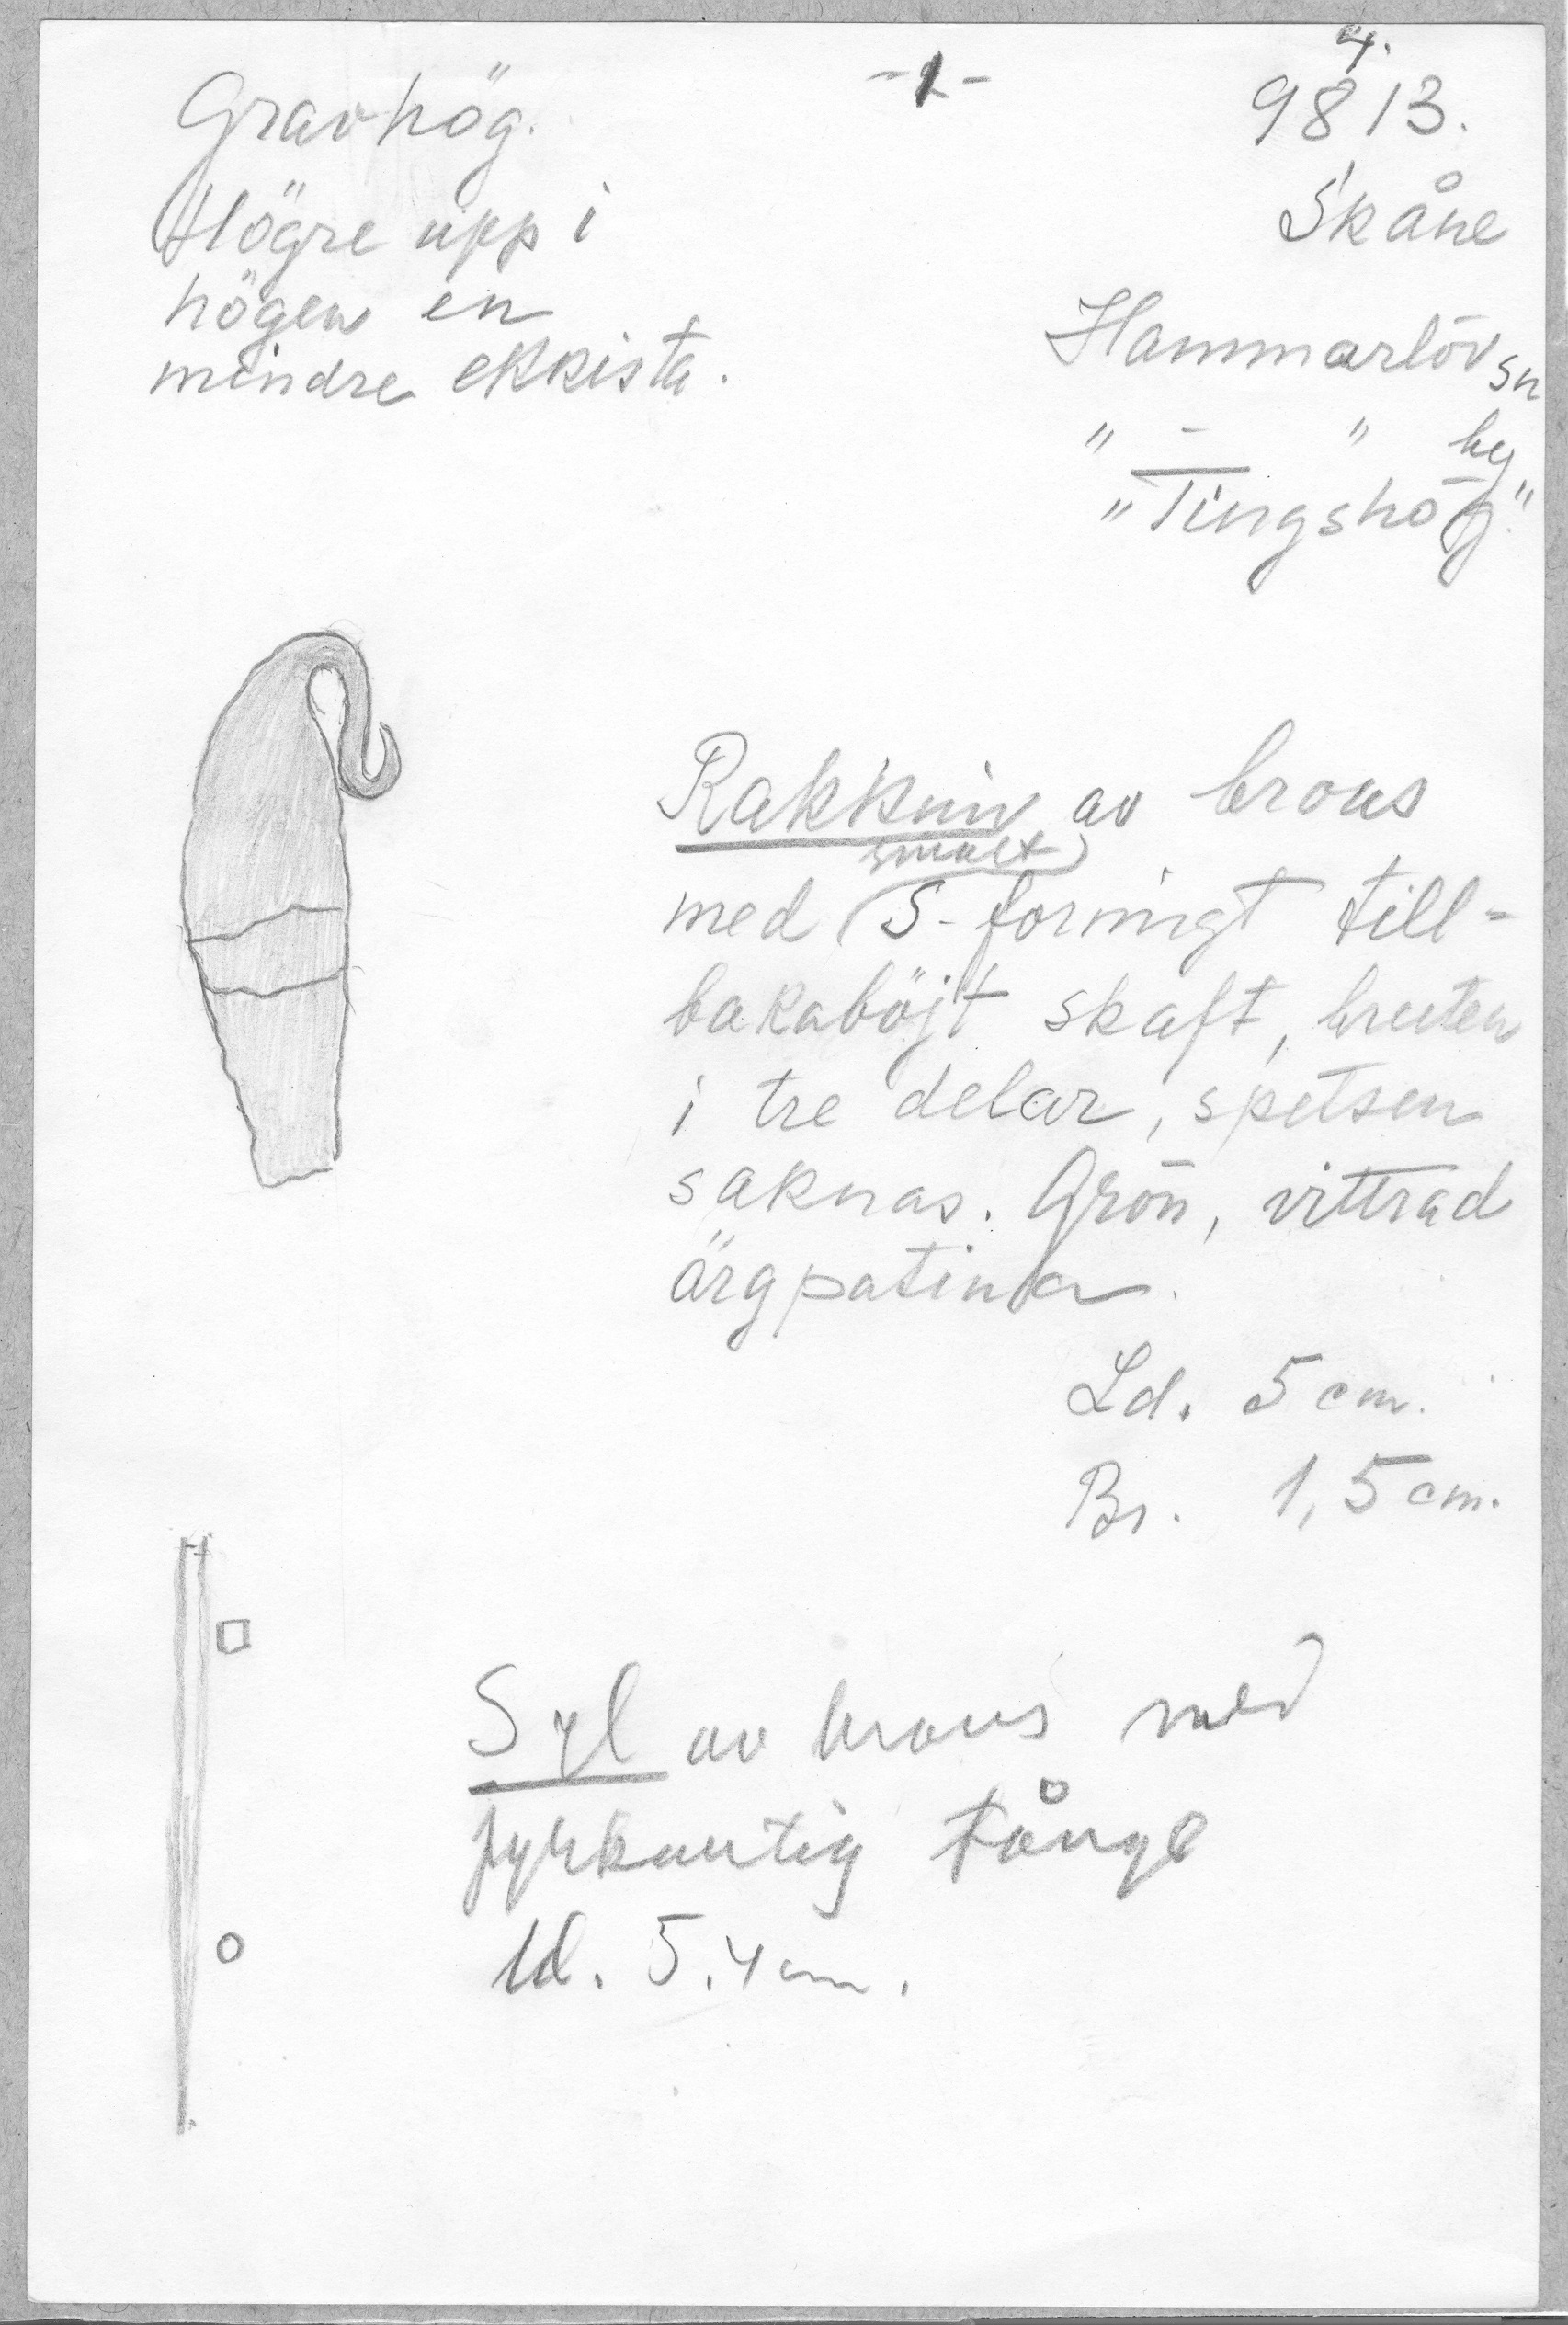 Gravhög.
Högre upp i
högen en
mindre ekkista.
-1-
4.
9813.
Skåne
Hammarlöv sn
" - " by
"Tingshög"
Rakkniv av brons
smalt
med S-formigt till-
bakaböjt skaft, bruten
i tre delar, spetsen
saknas. Grön, vittrad
ärgpatina.
Ld. 5 cm.
Br. 1,5 cm.
Syl av brons med
fyrkantig tånge
ld. 5.4 cm.